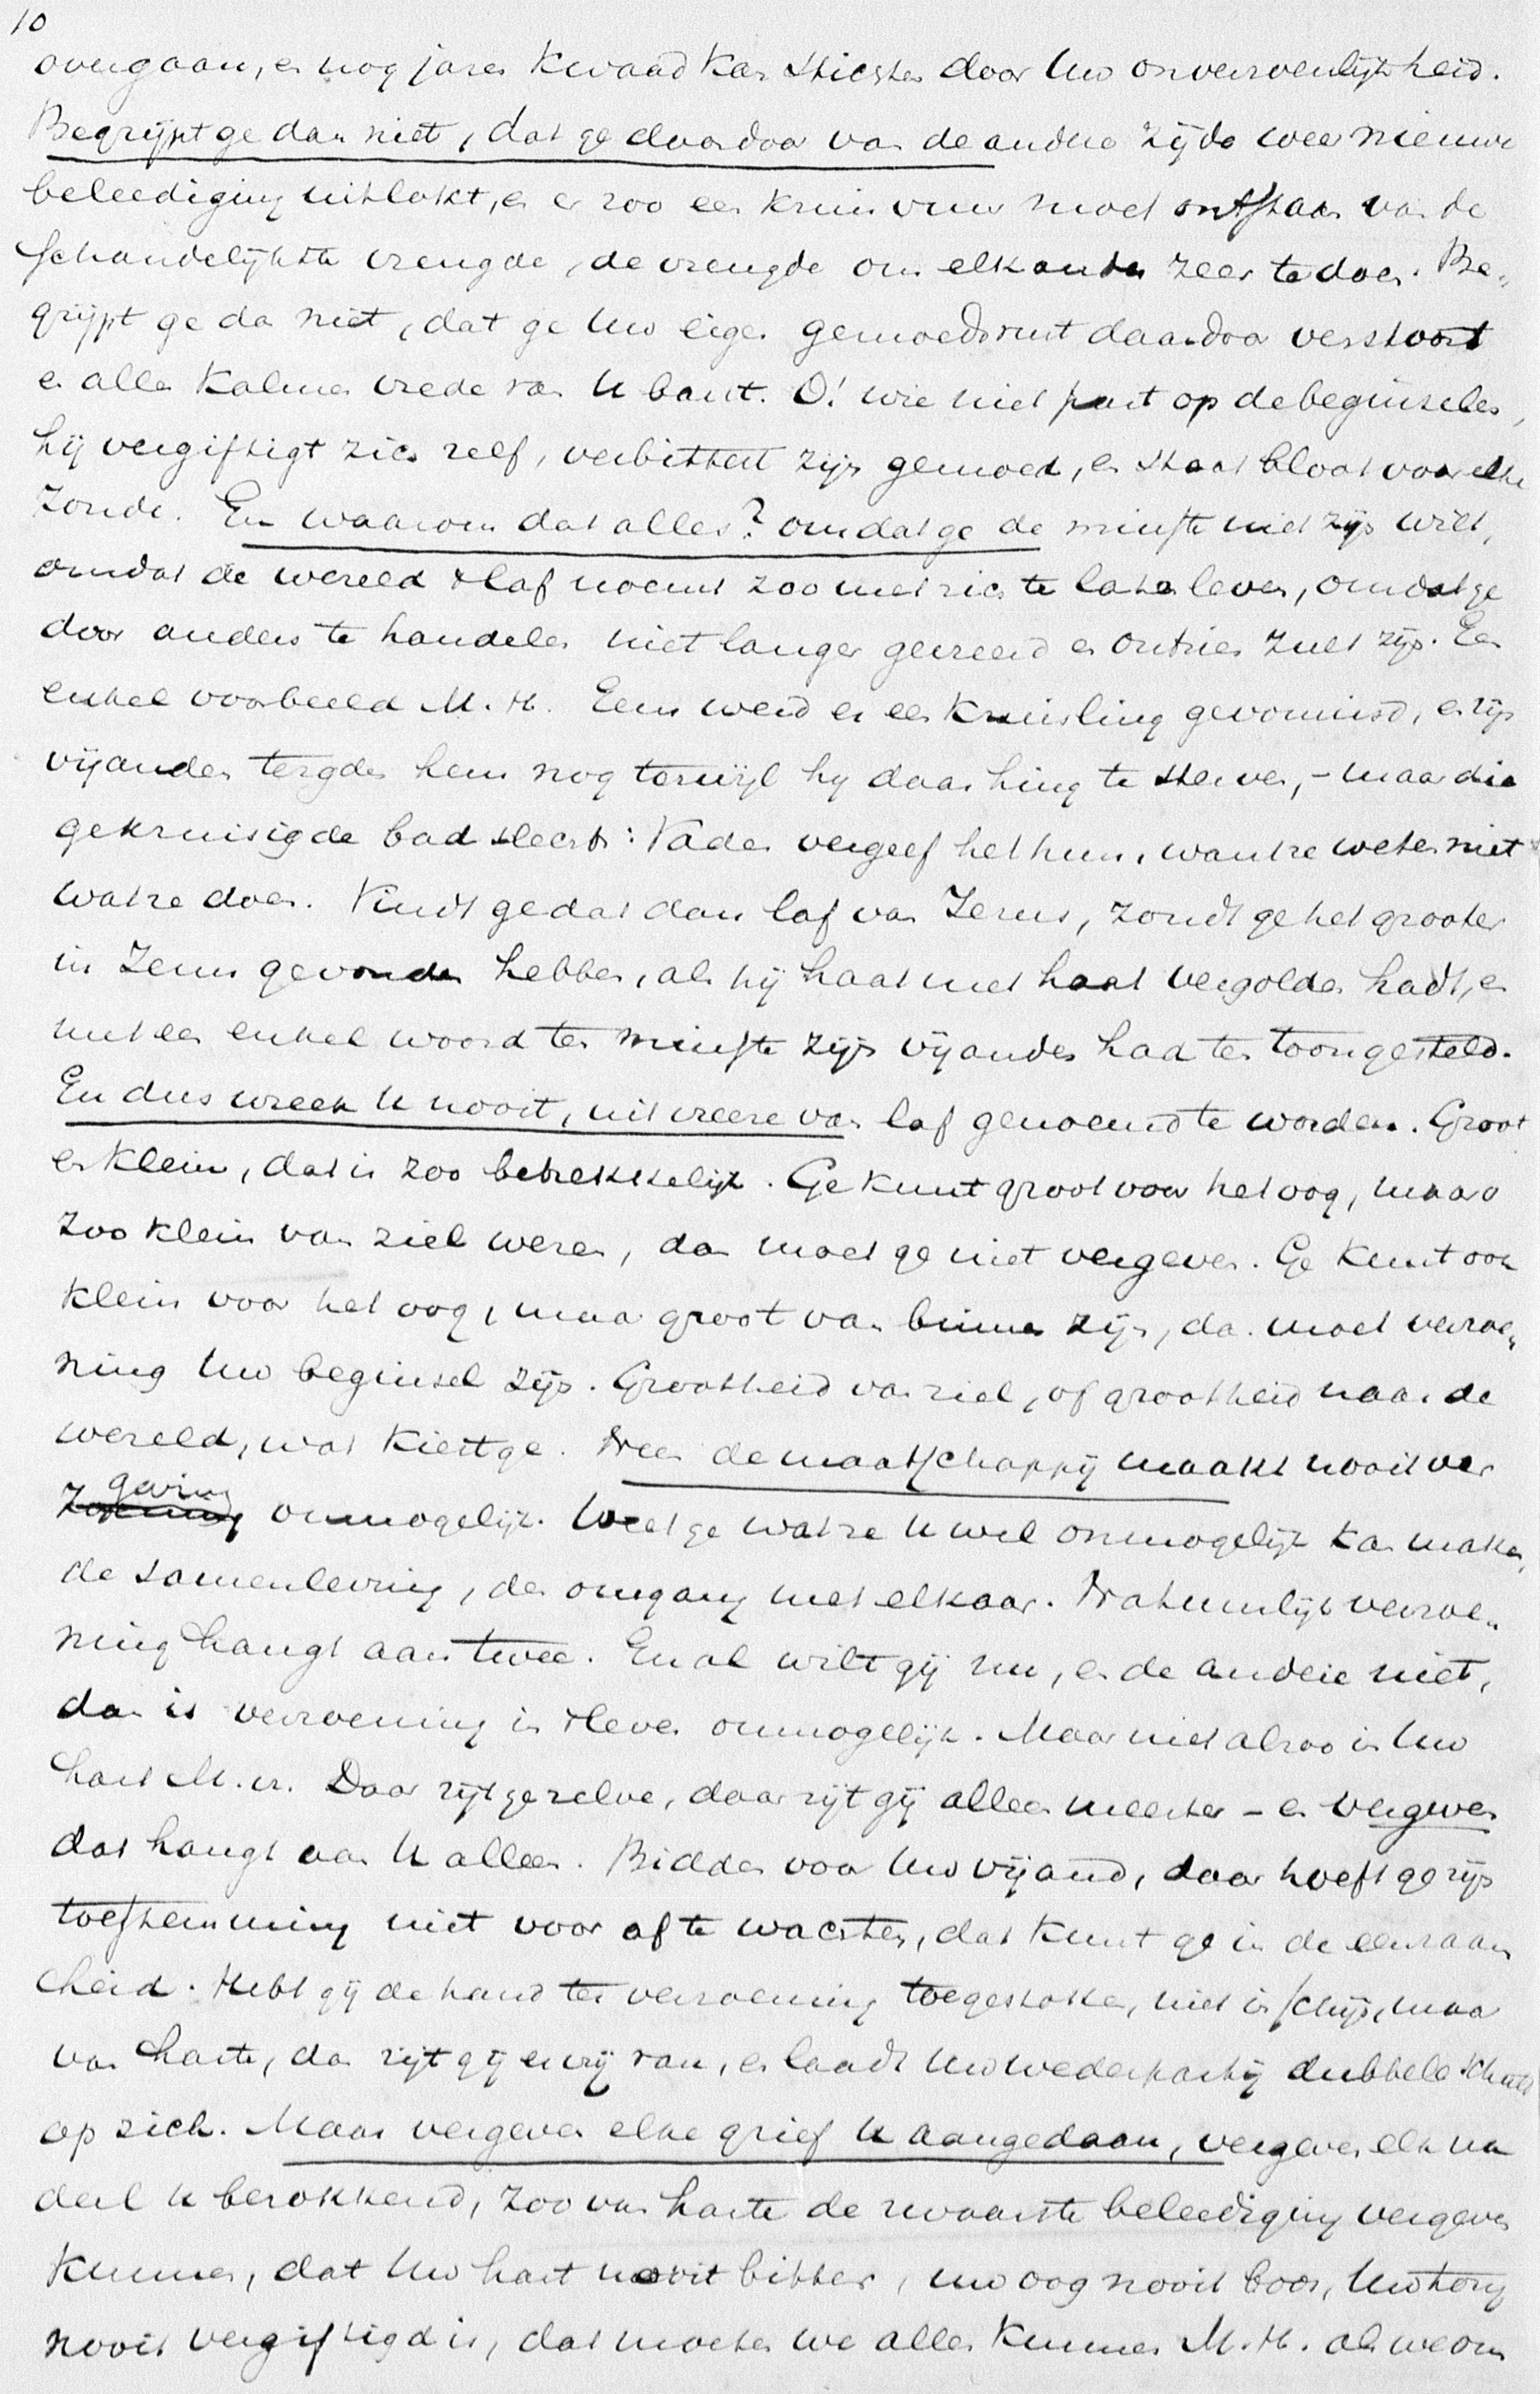 10
overgaan, en nog jaren kwaad kan stichten door Uw onverzoenlijkheid.
Begrijpt ge dan niet, dat ge daardoor van de andere zijde weer nieuwe
beleediging uitlokt, en er zoo een kruisvuur moet ontstaan van de
schandelijkste vreugde, de vreugde om elkander zeer te doen. Be-
grijpt ge dan niet, dat ge Uw eigen gemoedsrust daardoor verstoort
en alle kalme vrede van U bant. O! wie niet past op de beginselen,
hij vergiftigt zich zelf, verbittert zijn gemoed, en staat bloot voor elke
zonde. En waarom dat alles? omdat ge de minste niet zijn wilt,
omdat de wereld 't laf noemt zoo met zich te laten leven, omdat ge
door anders te handelen niet langer gevreesd en ontzien zult zijn. Een
enkel voorbeeld M. H. Eens werd er een kruisling gevonnisd, en zijn
vijanden tergden hem nog terwijl hij daar hing te sterven, - maar die
gekruisigde bad slechts: Vader vergeef het hun, want ze weten niet
wat ze doen. Vindt ge dat dan laf van Jezus, zoudt ge het grooter
in Jezus gevonden hebben, als hij haat met haat vergolden hadt, en
met een enkel woord ten minste zijn vijanden had ten toon gesteld.
En dus wreek U nooit, uit vreeze van laf genoemd te worden. Groot
en klein, dat is zoo betrekkelijk. Ge kunt groot voor het oog, maar
zoo klein van ziel wezen, dan moet ge niet vergeven. Ge kunt ook
klein voor het oog, maar groot van binnen zijn, dan moet verzoe-
ning Uw beginsel zijn. Grootheid van ziel, of grootheid naar de
wereld, wat kiest ge. Neen de maatschappij maakt nooit ver
geving
onmogelijk. Weet ge wat ze U wel onmogelijk kan maken,
de samenleving, den omgang met elkaar. Natuurlijk verzoe-
ning hangt aan twee. En al wilt gij nu, en de andere niet,
dan is verzoening in 't leven onmogelijk. Maar niet alzoo in Uw
hart M. H. Daar zijt ge zelve, daar zijt gij alleen meester - en vergeven
dat hangt van U alleen. Bidden voor Uw vijand, daar hoeft ge zijn
toestemming niet voor af te wachten, dat kunt ge in de eenzaam
heid. Hebt gij de hand ter verzoening toegestoken, niet in schijn, maar
van harte, dan zijt gij er vrij van, en laadt Uw wederpartij dubbele schuld
op zich. Maar vergeven elke grief U aangedaan, vergeven elk na
deel U berokkend, zoo van harte de zwaarste beleediging vergeven
kunnen, dat Uw hart nooit bitter, uw oog nooit boos, Uw tong
nooit vergiftigd is, dat moeten we allen kunnen M. H. als we ons